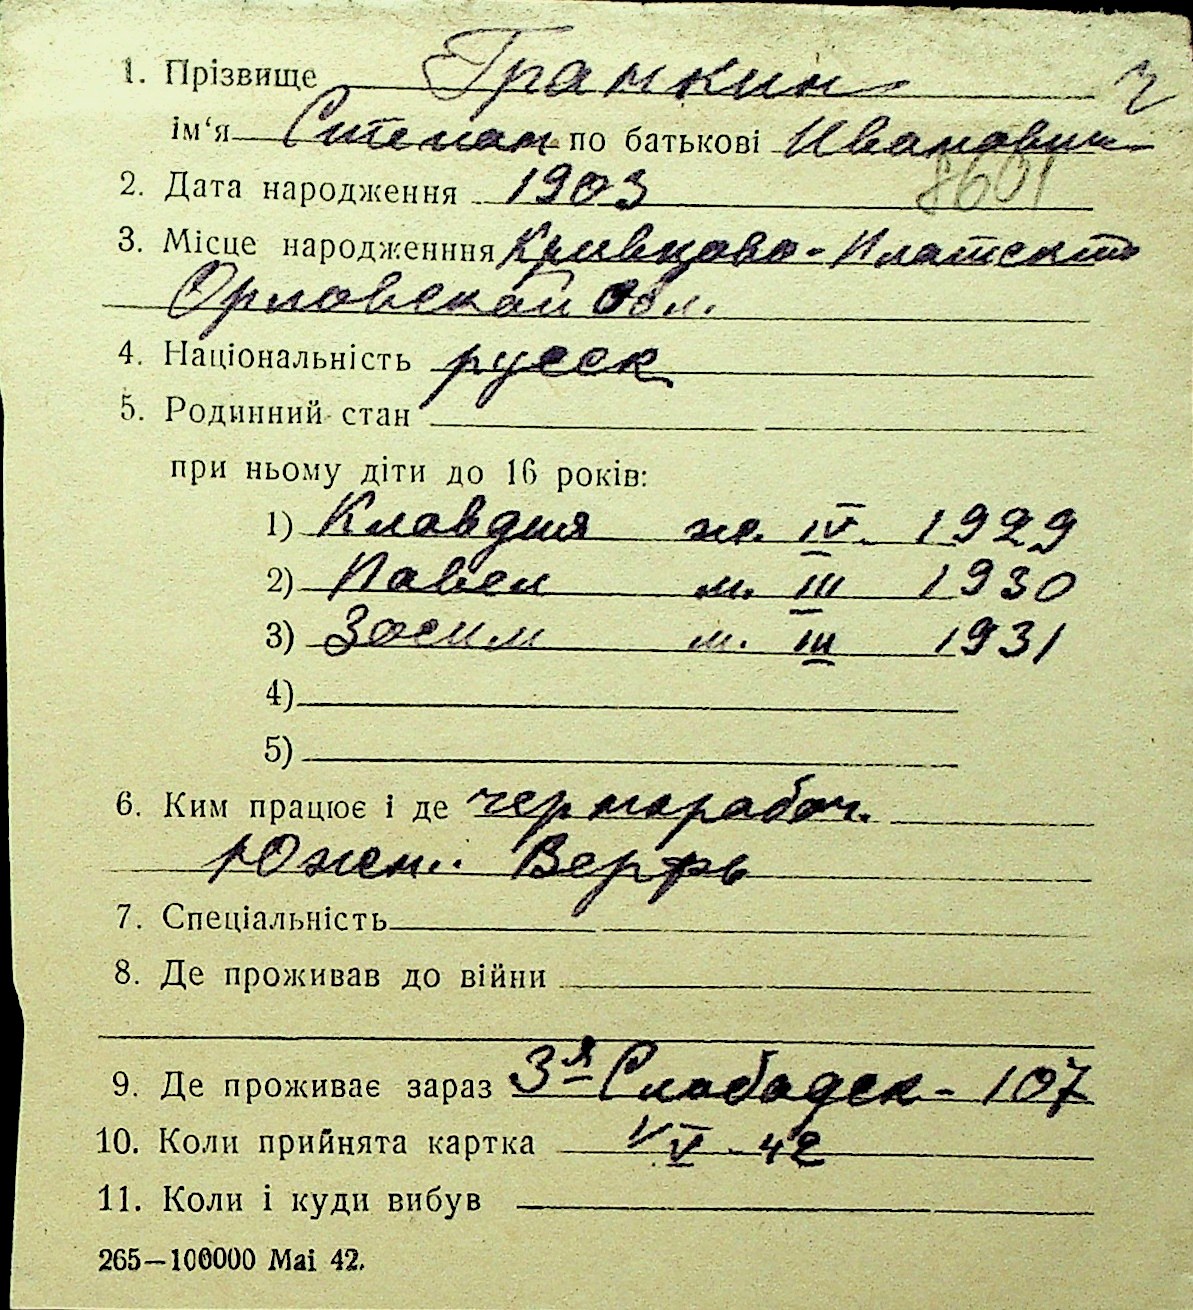 1. Прізвище Гранкин
ім‘я Степан по батькові Иванович
8601
2. Дата народження 1903
3. Місце народженння Кривцово-Платск
Орловской обл.
4. Національність русск
5. Родинний стан
при ньому діти до 16 років:
1) Клавдия ж. IV. 1929
2) Павел м. III 1930
3) Зосим м. III 1931
4)
5)
6. Ким працює і де чернорабоч.
Южн. Верфь
7. Спеціальність
8. Де проживав до війни
9. Де проживає зараз 3я Слободск - 107
10. Коли прийнята картка V - 42
11. Коли і куди вибув
265—100000 Mai 42.